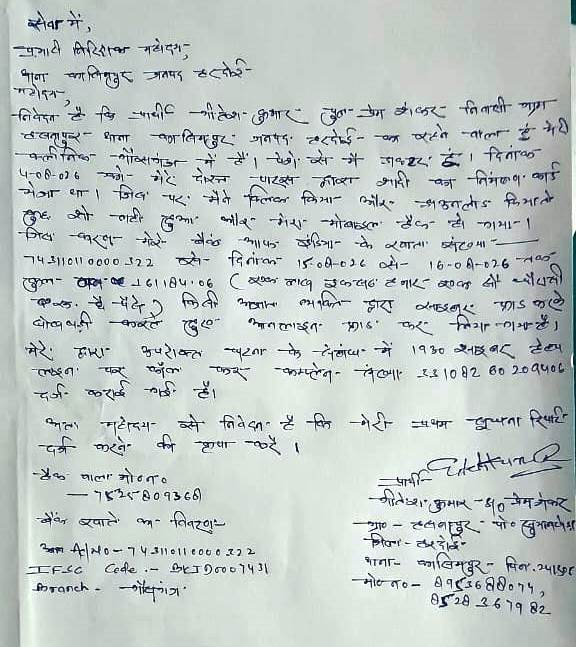 सेवा में,
प्रभारी निरीक्षक महोदय,
थाना कासिमपुर जनपद हरदोई
महोदय,
निवेदन है कि प्रार्थी गीतेश कुमार पुत्र प्रेम शंकर निवासी ग्राम
थाना कासिमपुर जनपद हरदोई का रहने वाला हूँ मेरी
क्लीनिक गौसगंज में है। पेशे से मैं डाक्टर हूँ। दिनांक
मेरे दोस्त पारस द्वारा शादी का निमंत्रण कार्ड
भेजा था। जिस पर मैंने क्लिक किया और डाउनलोड किया तो
कुछ भी नहीं हुआ और मेरा मोबाइल हैक हो गया।
जिस कारण मेरे बैंक आफ इंडिया के खाता संख्या
743110110000322 से दिनांक 15-08-026 से 16-08-026 तक
कुल 161184.06 (एक लाख इकसठ हजार एक सौ चौरासी
रू. छः पैसे) किसी अज्ञात व्यक्ति द्वारा साइबर फ्राड करके
धोखाधड़ी करते हुए आनलाइन फ्राड कर लिया गया है।
मेरे द्वारा उपरोक्त घटना के संबंध में 1930 साइबर हेल्प
लाइन पर कॉल कर कम्प्लेन संख्या 33108260209406
दर्ज कराई गई है।
अतः महोदय से निवेदन है कि मेरी प्रथम सूचना रिपोर्ट
दर्ज करने की कृपा करें।
हैक वाला मो०न०
प्रार्थी
गीतेश कुमार S/o प्रेम शंकर
बैंक खाते का विवरण
ग्रा०- पो०
जिला- हरदोई
A/No- 743110110000322
थाना- कासिमपुर पिन.
IFSC Code :- BKID0007431
मो०न०-
Branch - गौसगंज
8528367982